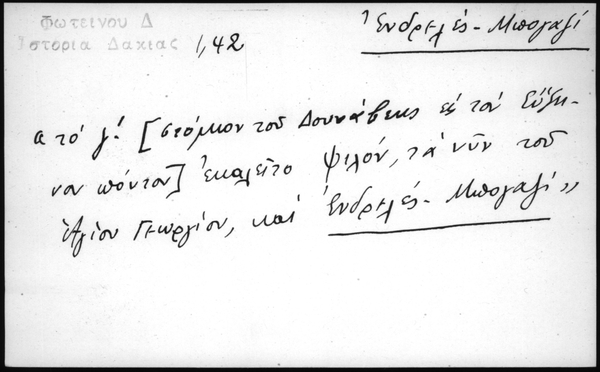 Φωτεινου Δ
Ιστορια Δακιας 1,42
Ἐνδρελές - Μπογαζί
α τό γ! [στόμιον τοῦ Δουνάβεως εἰς τόν Εὔξει-
νον πόντον] ἐκαλεῖτο ψιλόν, τά νῦν τοῦ
Ἁγίου Γεωργίου, καί Ἐνδρελές - Μπογαζί,,